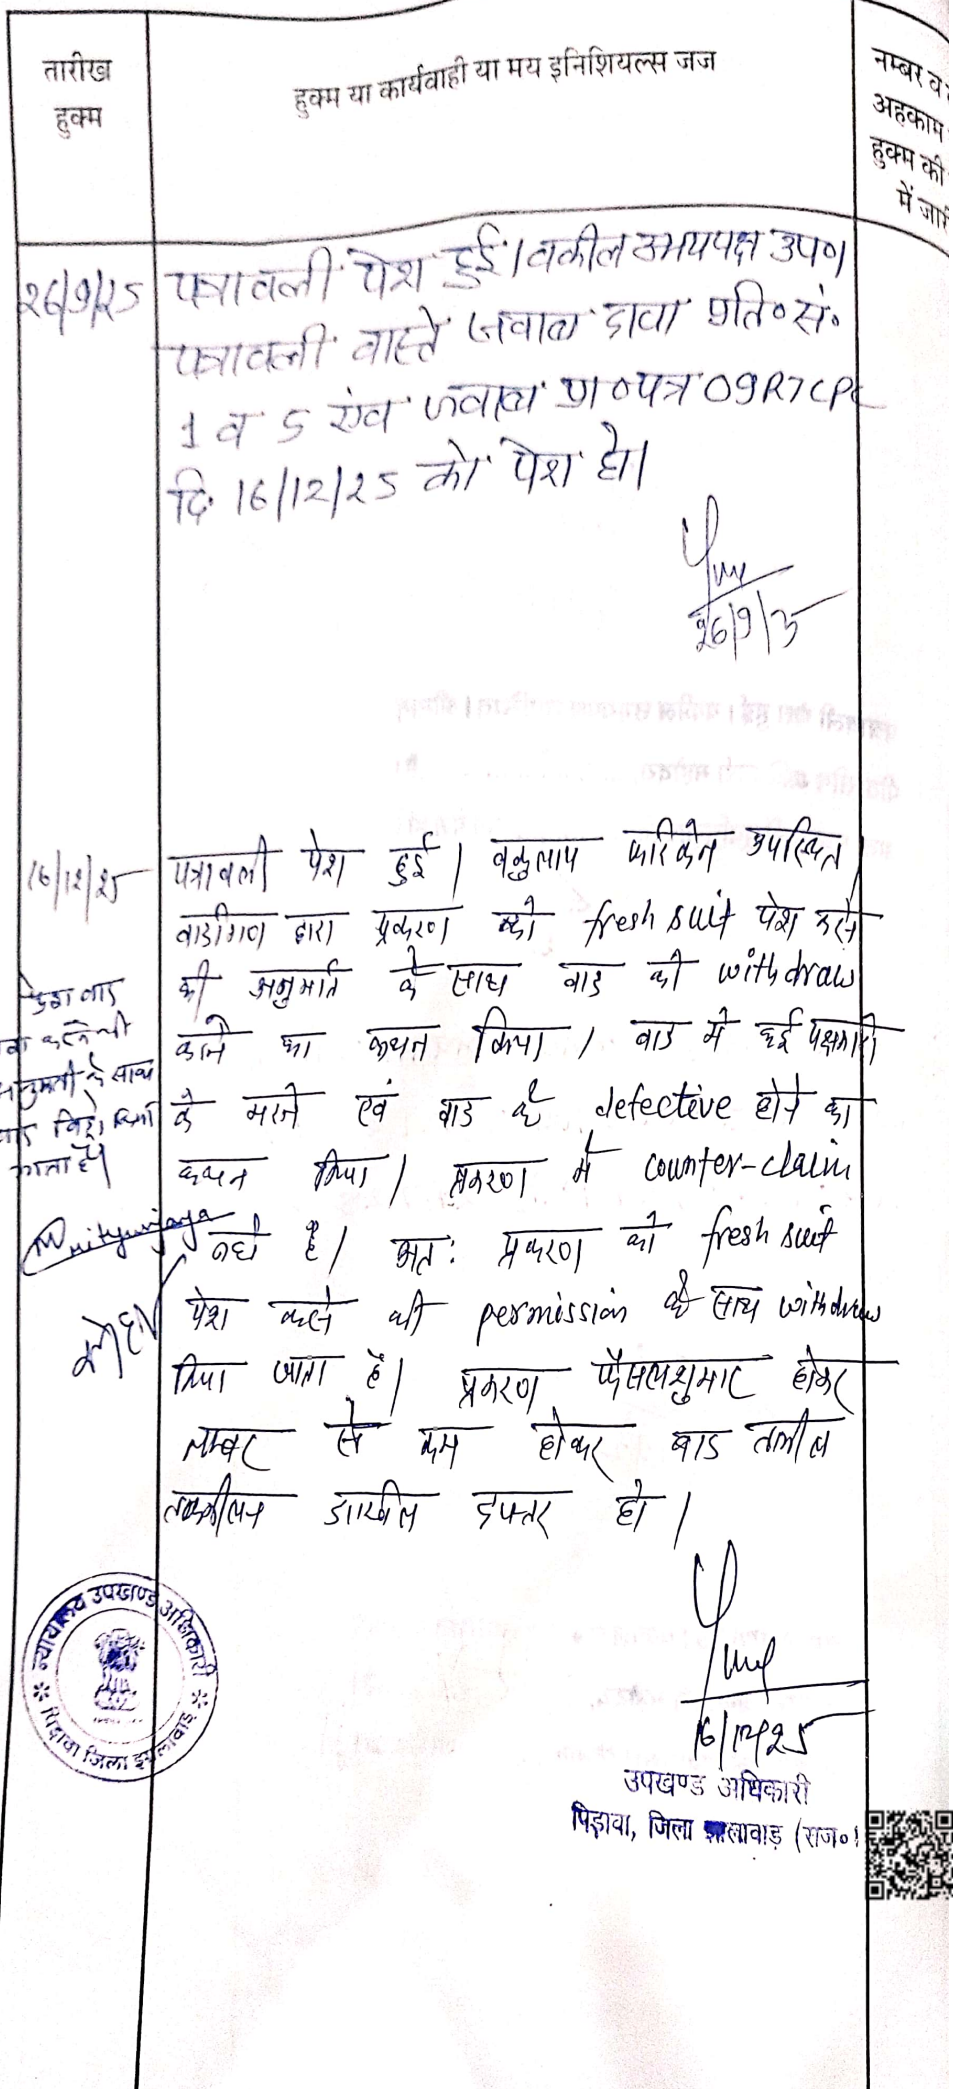 तारीख
हुक्म
हुक्म या कार्यवाही या मय इनिशियल्स जज
नम्बर व
अहकाम
हुक्म की
में जारी
26/9/25
पत्रावली पेश हुई। वकील उभयपक्ष उप०।
पत्रावली वास्ते जवाब दावा प्रति० सं०
1 व 5 एंव जवाब प्रा०पत्र O9R7CPC
दि. 16/12/25 को पेश हो।
26/9/25
16/12/25
पत्रावली पेश हुई। वकुलाय फरिकेन उपस्थित।
वादीगण द्वारा प्रकरण को fresh suit पेश करने
की अनुमति के साथ वाद को withdraw
करने का कथन किया। वाद में कई पक्षकारो
के मरने एवं वाद के defective होने का
कथन किया। प्रकरण में counter-claim
नही है। अतः प्रकरण को fresh suit
पेश करने की permission के साथ withdraw
किया जाता है। प्रकरण फैसलशुमार होकर
नम्बर से कम होकर बाद तामील
तकमील दाखील दफ्तर हो।
वाद
करने की
अनुमती के साथ
वाद विड्रो किया
जाता है।
Mrityunjaya
न्यायालय उपखण्ड अधिकारी
पिड़ावा जिला झालावाड़
16/12/25
उपखण्ड अधिकारी
पिड़ावा, जिला झालावाड़ (राज०)